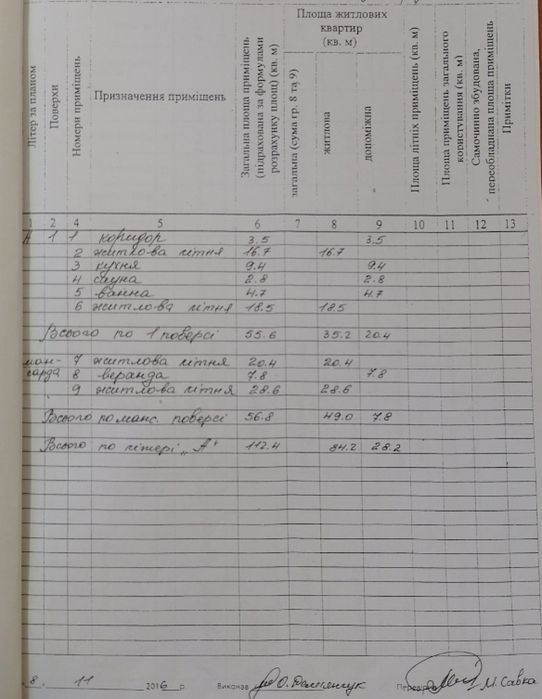 Літер за планом
Поверхи
Номери приміщень
Призначення приміщень
Загальна площа приміщень
(підрахована за формулами
розрахунку площ) (кв. м)
Площа житлових
квартир
(кв. м)
загальна (сума гр. 8 та 9)
житлова
допоміжна
Площа літніх приміщень (кв. м)
Площа приміщень загального
користування (кв. м)
Самочинно збудована,
переобладнана площа приміщень
Примітки
1 2 4 5 6 7 8 9 10 11 12 13
А 1 1 коридор 3.5 3.5
2 житлова літня 16.7 16.7
3 кухня 9.4 9.4
4 сауна 2.8 2.8
5 ванна 4.7 4.7
6 житлова літня 18.5 18.5
Всього по 1 поверсі 55.6 35.2 20.4
ман- 7 житлова літня 20.4 20.4
сарда 8 веранда 7.8 7.8
9 житлова літня 28.6 28.6
Всього по манс. поверсі 56.8 49.0 7.8
Всього по літері „А" 112.4 84.2 28.2
8. 11 2016 р. Виконав О. Дем'янчук Перевірив М. Савка